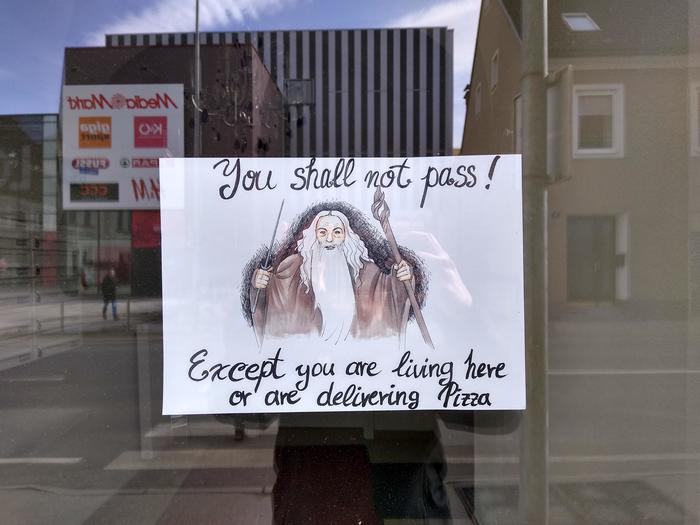 MediaMarkt
giga
sport
K&Ö
FUSSL
SPAR
CCC
H&M
You shall not pass!
Except you are living here
or are delivering Pizza